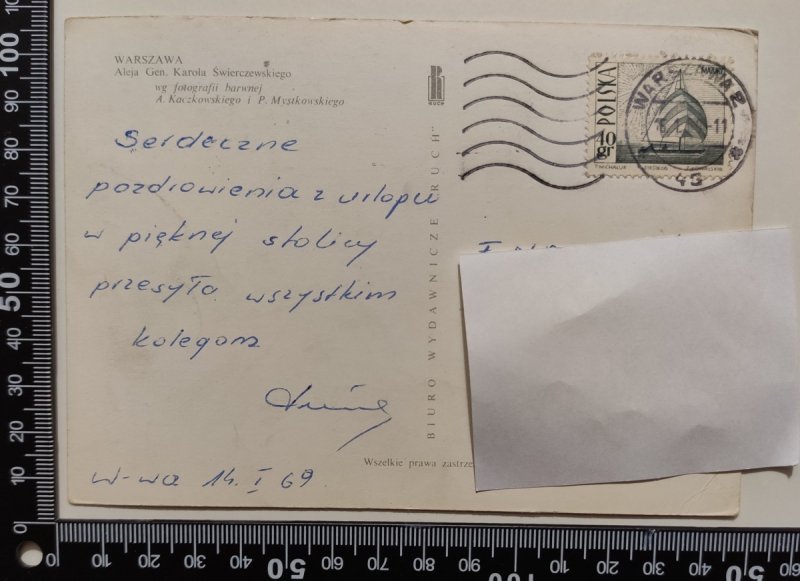 WARSZAWA
Aleja Gen. Karola Świerczewskiego
wg fotografii barwnej
A. Kaczkowskiego i P. Mystkowskiego
Serdeczne
pozdrowienia z urlopu
w pięknej stolicy
przesyła wszystkim
kolegom
W-wa 14. I 69
BIURO WYDAWNICZE „RUCH”
RUCH
Wszelkie prawa
POLSKA
40 gr
100
90
80
70
60
50
40
30
20
10
0
0
10
20
30
40
50
60
70
80
90
100
10
20
30
40